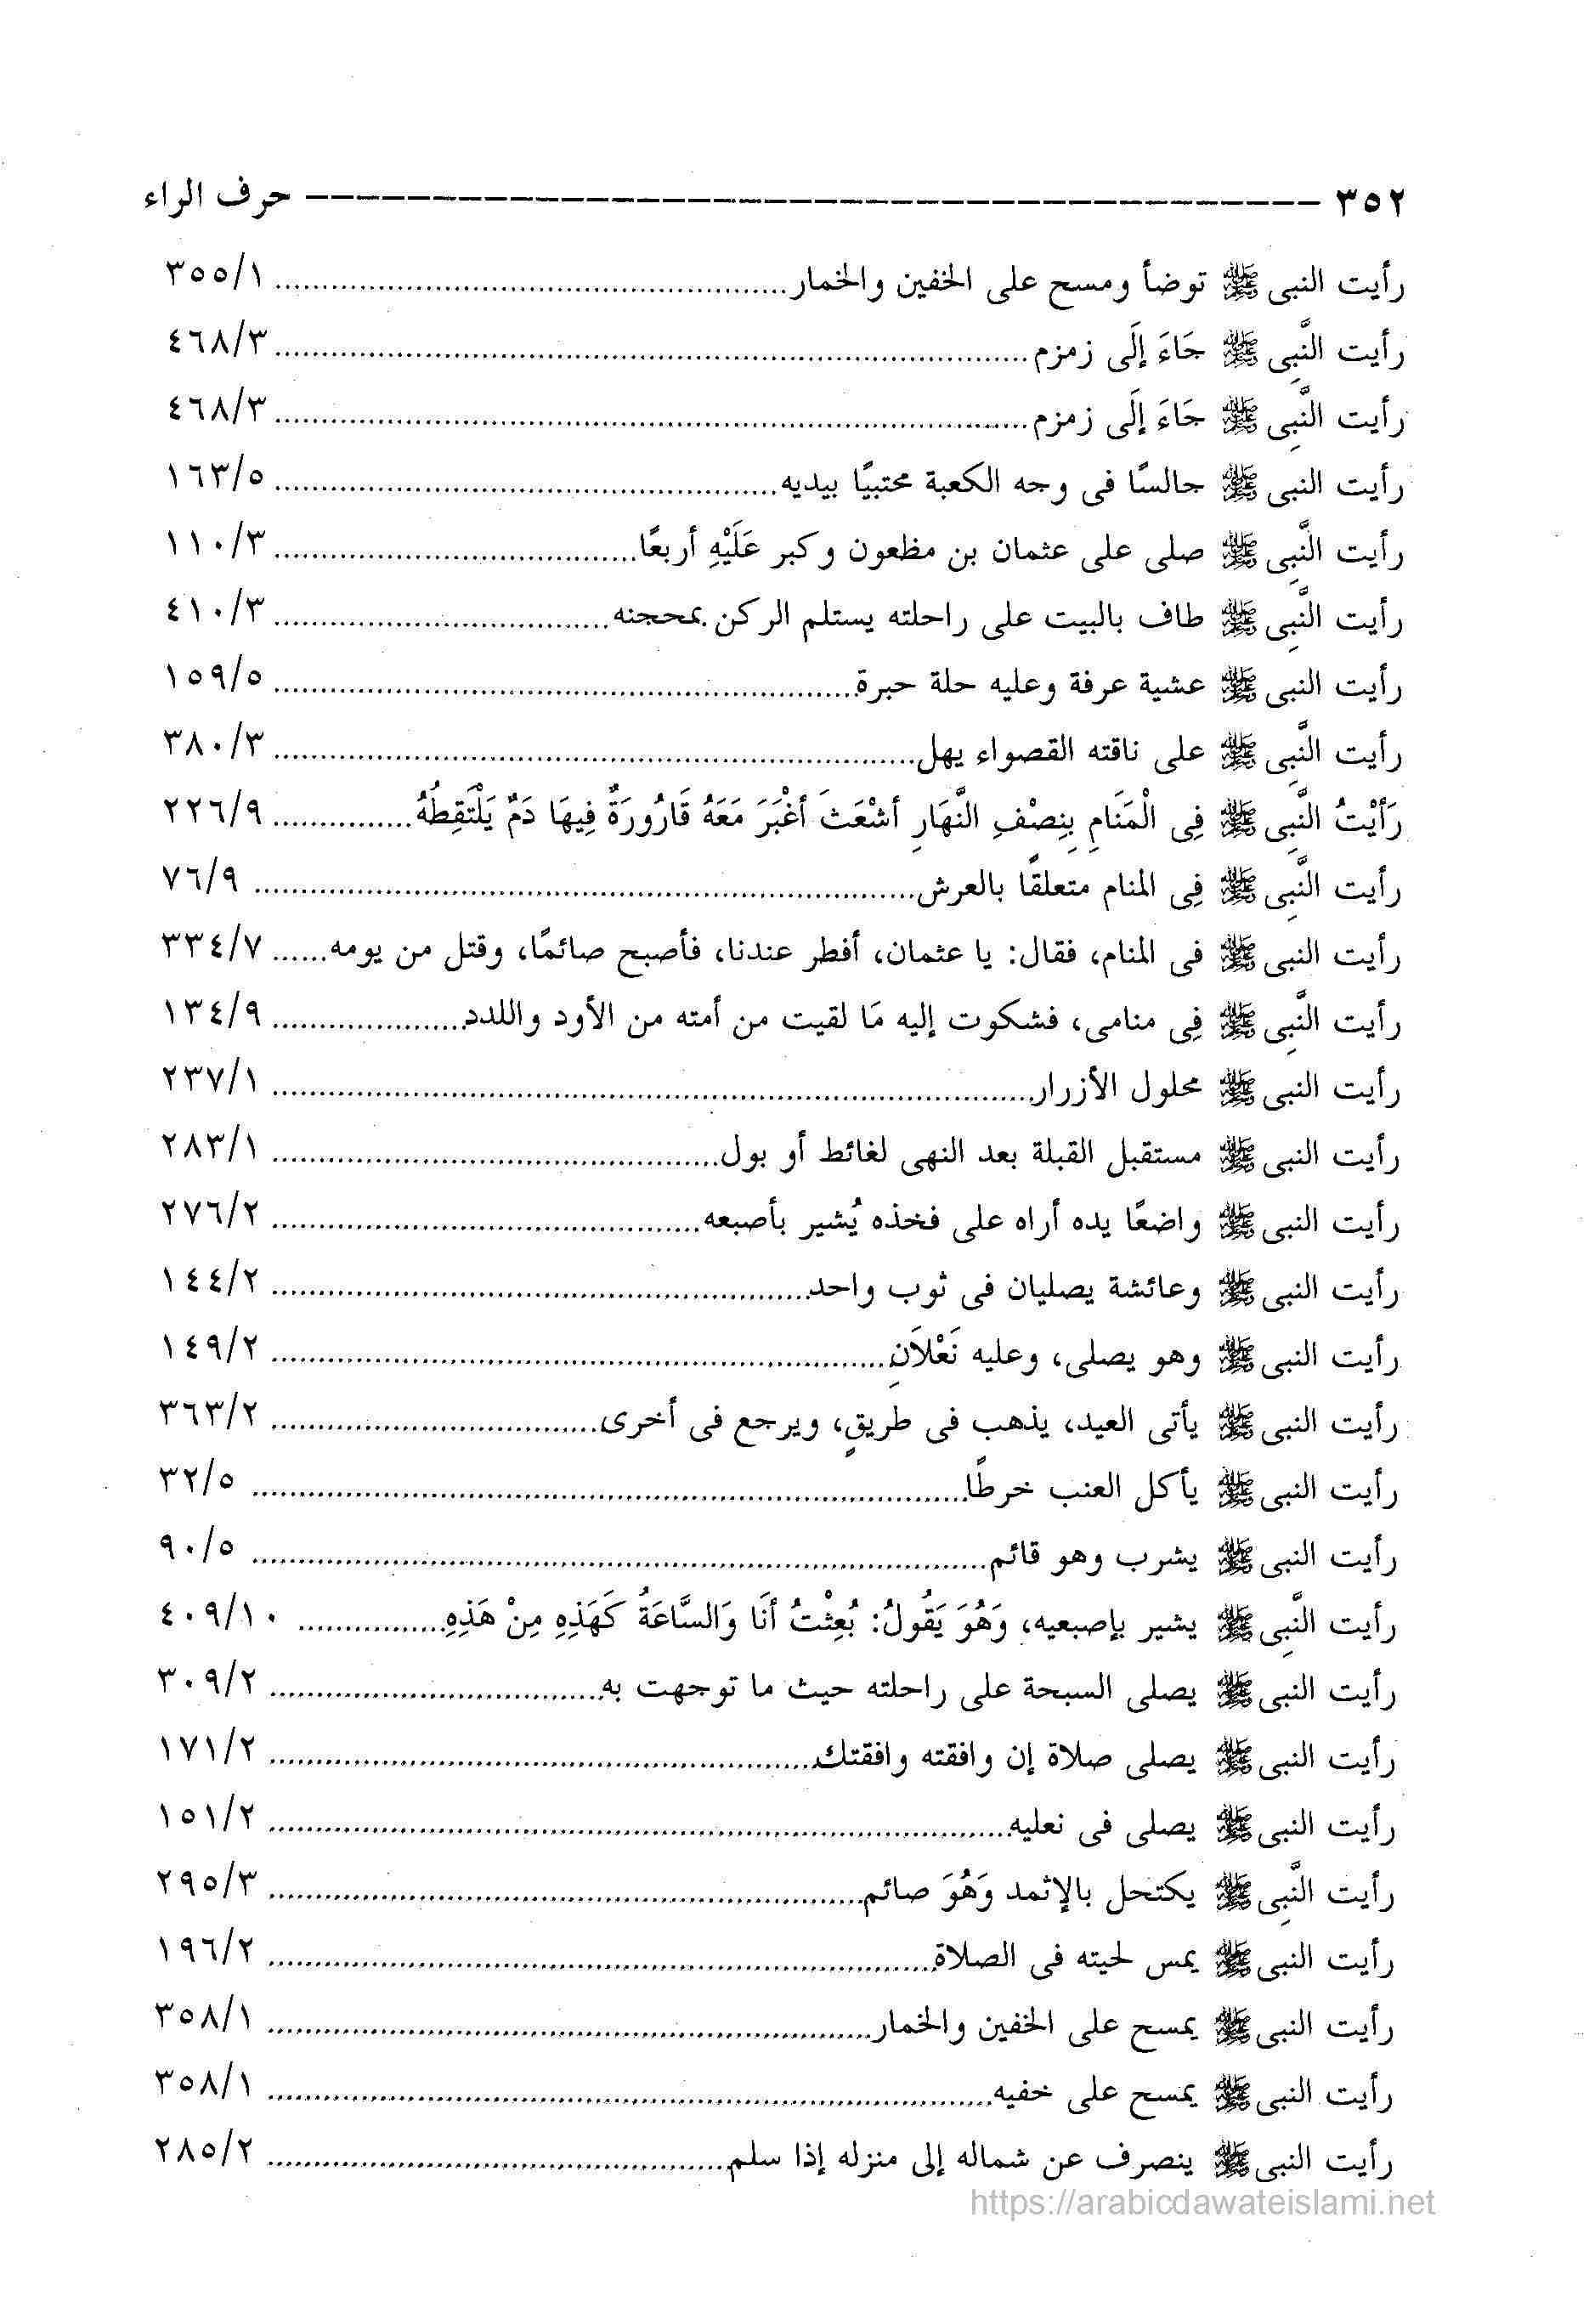 ٣٥٢ ـــــــــــــــــــــــــــــــــــــــــــــــــــــــــــــــــــــــــــــ حرف الراء
رأيت النبى ﷺ توضأ ومسح على الخفين والخمار .......... ٣٥٥/١
رأيت النَّبِى ﷺ جَاءَ إلَى زمزم .......... ٤٦٨/٣
رأيت النَّبِى ﷺ جَاءَ إلَى زمزم .......... ٤٦٨/٣
رأيت النبى ﷺ جالسًا فى وجه الكعبة محتبيًا بيديه .......... ١٦٣/٥
رأيت النَّبِى ﷺ صلى على عثمان بن مظعون وكبر عَلَيْهِ أربعًا .......... ١١٠/٣
رأيت النَّبِى ﷺ طاف بالبيت على راحلته يستلم الركن بمحجنه .......... ٤١٠/٣
رأيت النبى ﷺ عشية عرفة وعليه حلة حبرة .......... ١٥٩/٥
رأيت النَّبِى ﷺ على ناقته القصواء يهل .......... ٣٨٠/٣
رَأَيْتُ النَّبِى ﷺ فِى الْمَنَامِ بِنِصْفِ النَّهَارِ أشْعَثَ أغْبَرَ مَعَهُ قَارُورَةٌ فِيهَا دَمٌ يَلْتَقِطُهُ .......... ٢٢٦/٩
رأيت النَّبِى ﷺ فِى المنام متعلقًا بالعرش .......... ٧٦/٩
رأيت النبى ﷺ فى المنام، فقال: يا عثمان، أفطر عندنا، فأصبح صائمًا، وقتل من يومه ...... ٣٣٤/٧
رأيت النَّبِى ﷺ فِى منامى، فشكوت إليه مَا لقيت من أمته من الأود واللدد .......... ١٣٤/٩
رأيت النبى ﷺ محلول الأزرار .......... ٢٣٧/١
رأيت النبى ﷺ مستقبل القبلة بعد النهى لغائط أو بول .......... ٢٨٣/١
رأيت النبى ﷺ واضعًا يده أراه على فخذه يُشير بأصبعه .......... ٢٧٦/٢
رأيت النبى ﷺ وعائشة يصليان فى ثوب واحد .......... ١٤٤/٢
رأيت النبى ﷺ وهو يصلى، وعليه نَعْلاَنِ .......... ١٤٩/٢
رأيت النبى ﷺ يأتى العيد، يذهب فى طريقٍ، ويرجع فى أخرى .......... ٣٦٣/٢
رأيت النبى ﷺ يأكل العنب خرطًا .......... ٣٢/٥
رأيت النبى ﷺ يشرب وهو قائم .......... ٩٠/٥
رأيت النَّبِى ﷺ يشير بإصبعيه، وَهُوَ يَقُولُ: بُعِثْتُ أنَا وَالسَّاعَةُ كَهَذِهِ مِنْ هَذِهِ .......... ٤٠٩/١٠
رأيت النبى ﷺ يصلى السبحة على راحلته حيث ما توجهت به .......... ٣٠٩/٢
رأيت النبى ﷺ يصلى صلاة إن وافقته وافقتك .......... ١٧١/٢
رأيت النبى ﷺ يصلى فى نعليه .......... ١٥١/٢
رأيت النَّبِى ﷺ يكتحل بالإثمد وَهُوَ صائم .......... ٢٩٥/٣
رأيت النبى ﷺ يمس لحيته فى الصلاة .......... ١٩٦/٢
رأيت النبى ﷺ يمسح على الخفين والخمار .......... ٣٥٨/١
رأيت النبى ﷺ يمسح على خفيه .......... ٣٥٨/١
رأيت النبى ﷺ ينصرف عن شماله إلى منزله إذا سلم .......... ٢٨٥/٢
https://arabicdawateislami.net